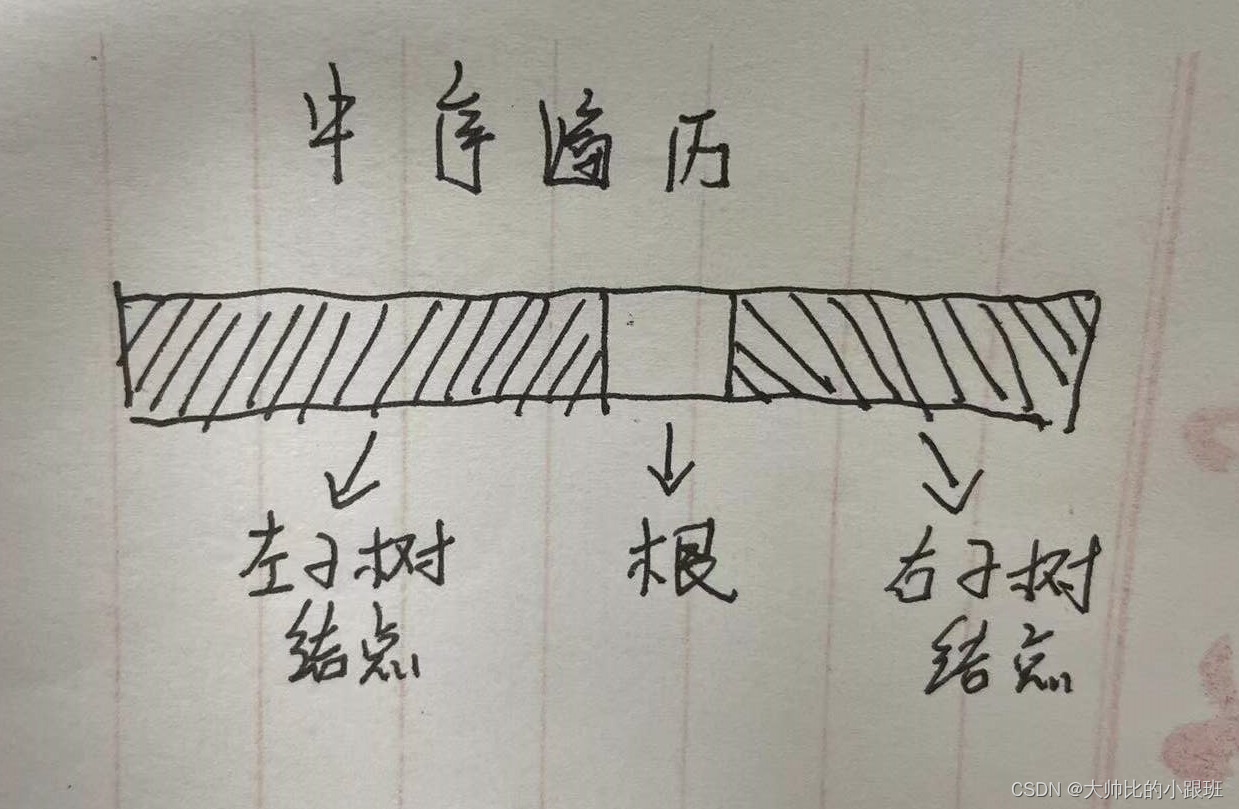 中序遍历
左子树
结点
根
右子树
结点
CSDN @大帅比的小跟班